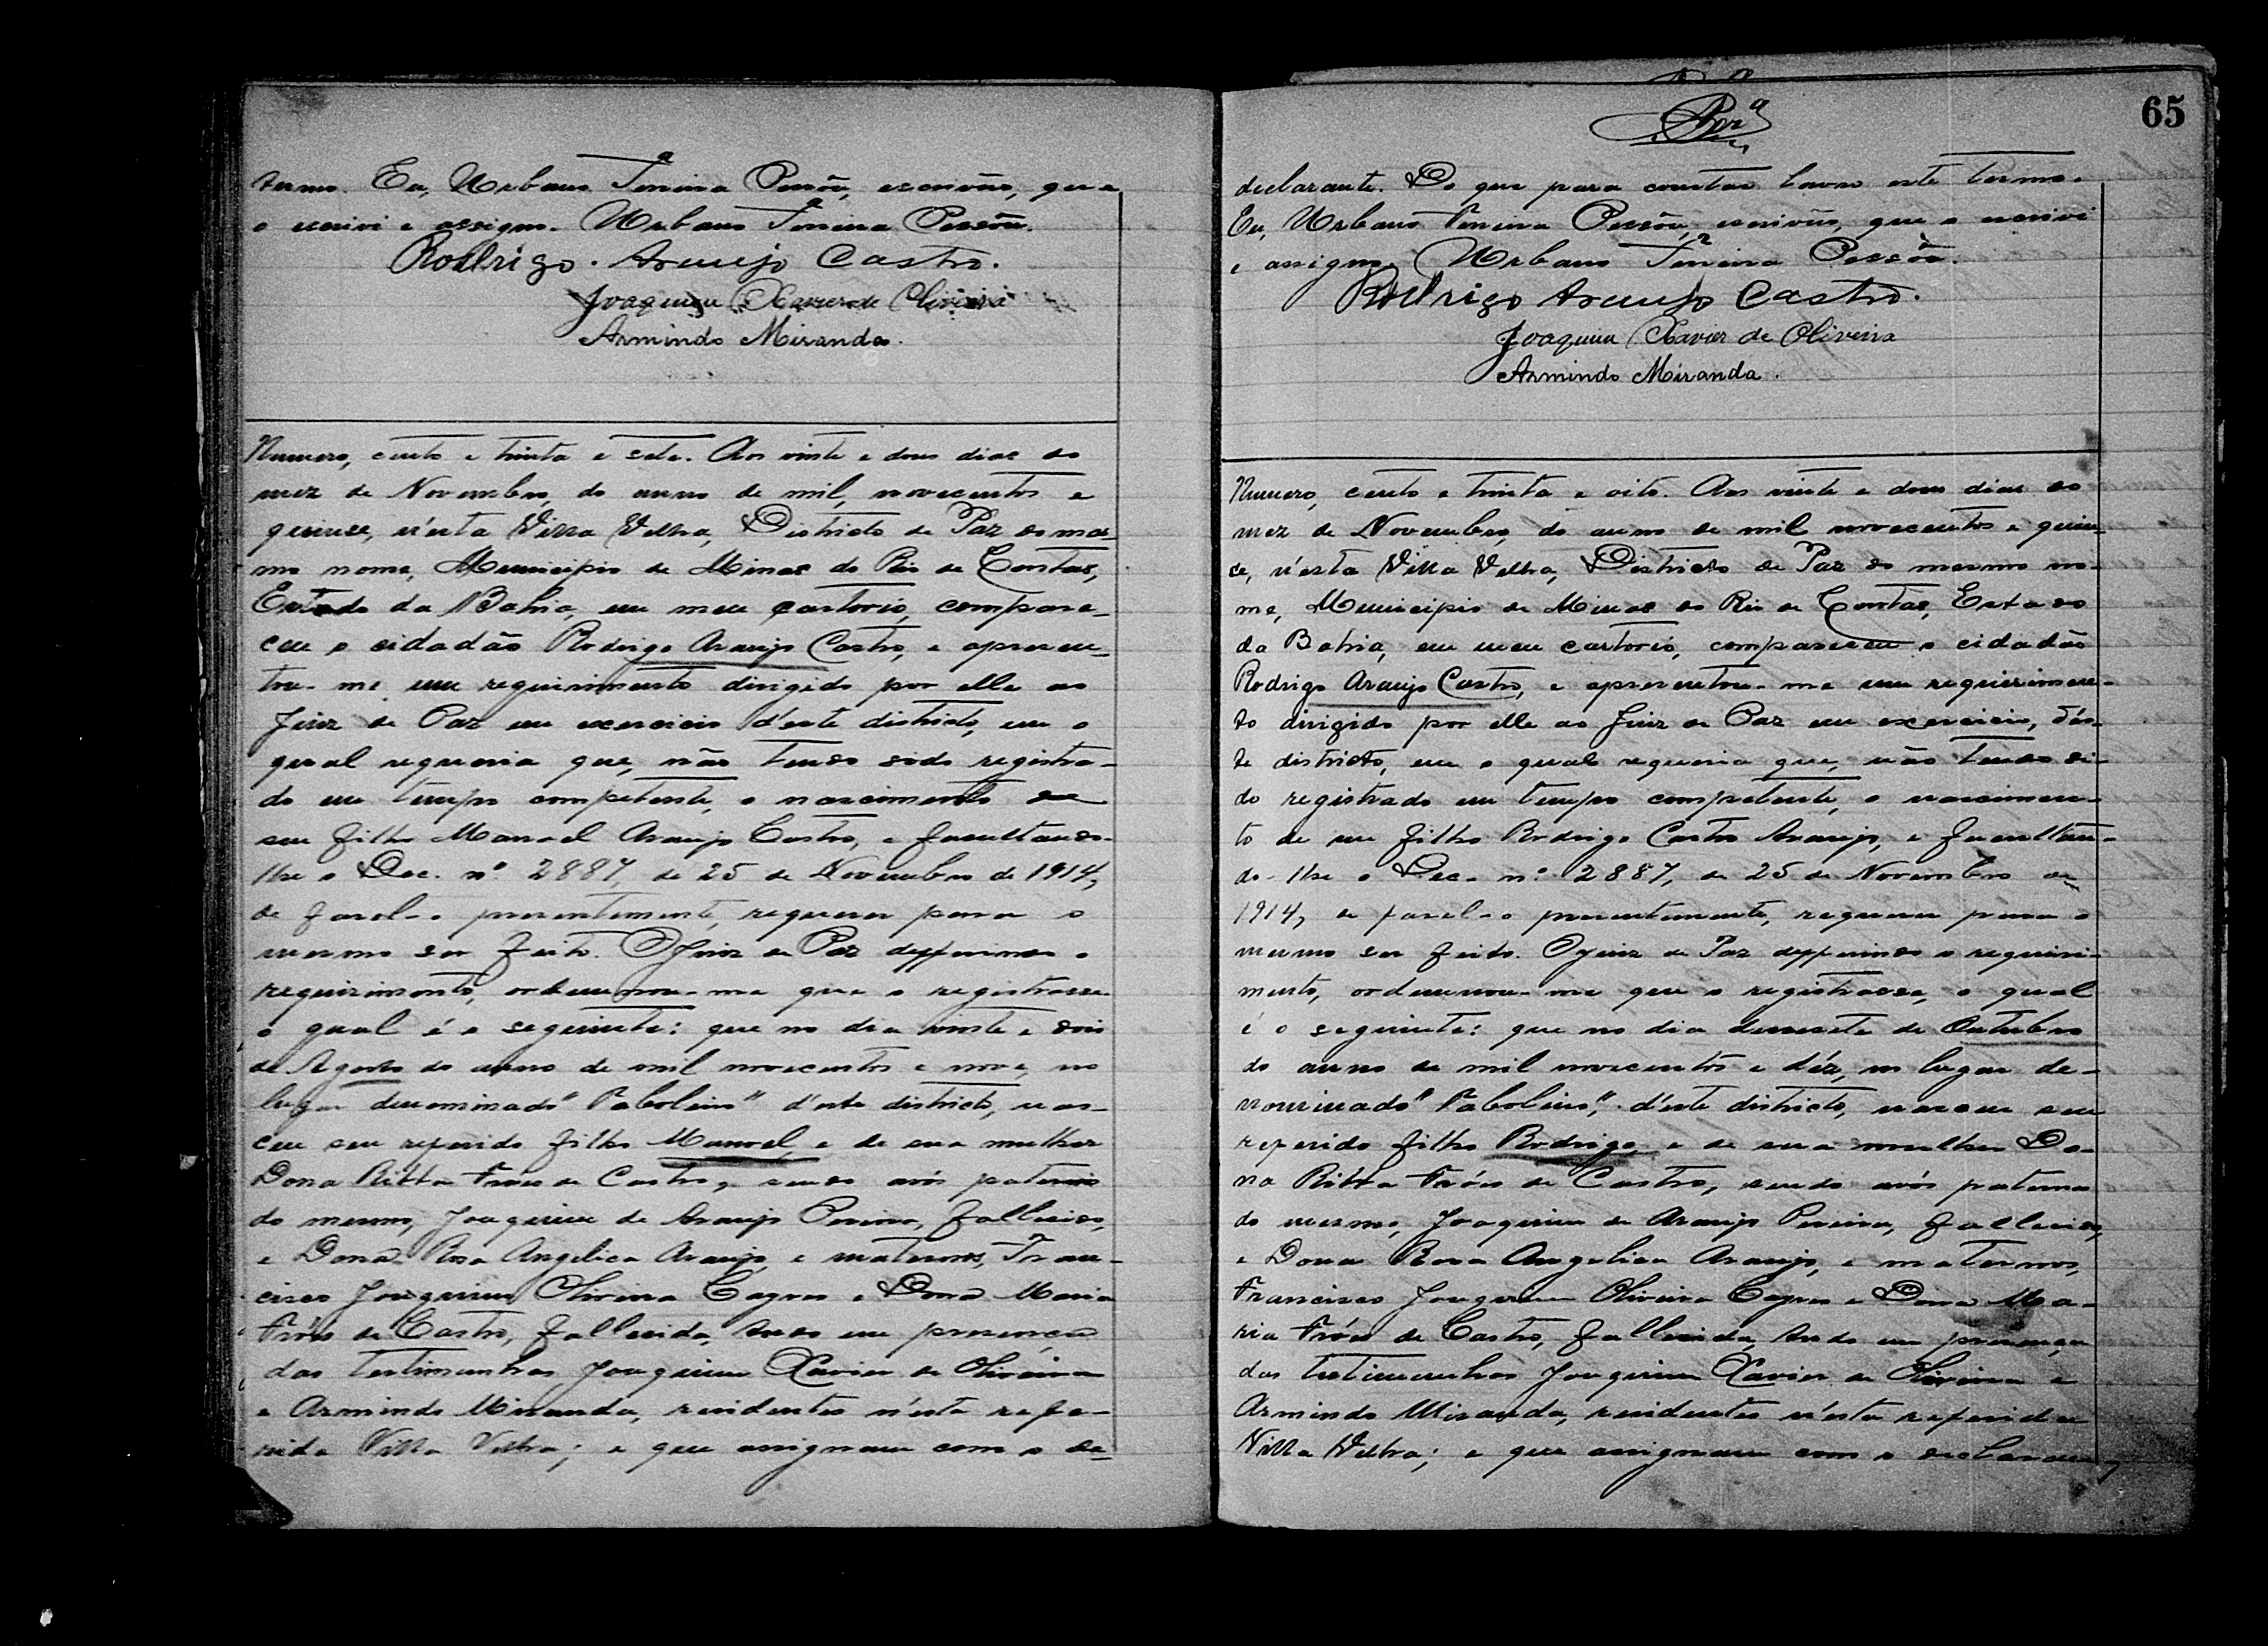 termo. Eu, Urbano Ferreira Pessôa, escrivão, que
o escrivi e assigno. Urbano Ferreira Pessôa.
Rodrigo. Araujo Castro.
Joaquim Xavier de Oliveira
Armindo Miranda.
Numero, cento e trinta e sete. Aos vinte e dous dias do
mez de Novembro, do anno de mil, novecentos e
quinze, n'esta Villa Velha, Districto de Paz do mes-
mo nome, Municipio de Minas do Rio de Contas,
Estado da Bahia, em meu cartorio, compare-
ceu o cidadão Rodrigo Araujo Castro, e apresen-
tou-me um requirimento dirigido por elle ao
Juiz de Paz em exercicio d'este districto, em o
qual requeria que, não tendo sido registra-
do em tempo competente, o nascimento de
seu filho Manoel Araujo Castro, e facultando-
lhe o Dec. nº 2887, de 25 de Novembro de 1914,
de fazel-o presentemente, requerer para o
mesmo ser feito. O Juiz de Paz defferindo o
requirimento, ordennou-me que o registrasse
o qual é o seguinte: que no dia vinte e dois
de Agosto do anno de mil novecentos e nove, no
lugar denominado "Taboleiro" d'este districto, nas-
ceu seu referido filho Manoel, e de sua mulher
Dona Ritta Fróes de Castro, sendo avós paternos
do mesmo, Joaquim de Araujo Pereira, fallecido,
e Dona Rosa Angelica Araujo, e maternos, Fran-
cisco Joaquim Oliveira e Dona Maria
Fróes de Castro, fallecida, tudo em presença
das testimunhas Joaquim Xavier de Oliveira
e Armindo Miranda, residentes n'esta refe-
rida Villa Velha; e que assignam com o de-
65
declarante. Do que para constar lavro este termo.
Eu, Urbano Ferreira Pessôa, escrivão, que o escrivi
e assigno. Urbano Ferreira Pessôa.
Rodrigo Araujo Castro.
Joaquim Xavier de Oliveira
Armindo Miranda.
Numero, cento e trinta e oito. Aos vinte e dous dias do
mez de Novembro, do anno de mil novecentos e quin-
ze, n'esta Villa Velha, Districto de Paz do mesmo no-
me, Municipio de Minas do Rio de Contas, Estado
da Bahia, em meu cartorio, compareceu o cidadão
Rodrigo Araujo Castro, e apresentou-me um requerimen-
to dirigido por elle ao Juiz de Paz em exercicio, d'és-
te districto, em o qual requeria que, não tendo si-
do registrado em tempo competente, o nascimen-
to de seu filho Rodrigo Castro Araujo, e facultan-
do-lhe o Dec. nº 2887, de 25 de Novembro de
1914, de fazel-o presentemente, requerer para o
mesmo ser feito. O Juiz de Paz defferindo o requiri-
mento, ordennou-me que o registrasse, o qual
é o seguinte: que no dia desesete de Outubro
do anno de mil novecentos e déz, no lugar de-
nominado "Taboleiro", d'este districto, nasceu seu
referido filho Rodrigo, e de sua mulher Do-
na Ritta Fróes de Castro, sendo avós paternos
do mesmo, Joaquim de Araujo Pereira, fallecido,
e Dona Rosa Angelica Araujo, e maternos,
Francisco Joaquim Oliveira e Dona Ma-
ria Fróes de Castro, fallecida, tudo em presença
das testimunhas Joaquim Xavier de Oliveira e
Armindo Miranda, residentes n'esta referida
Villa Velha; e que assignam com o declarante,